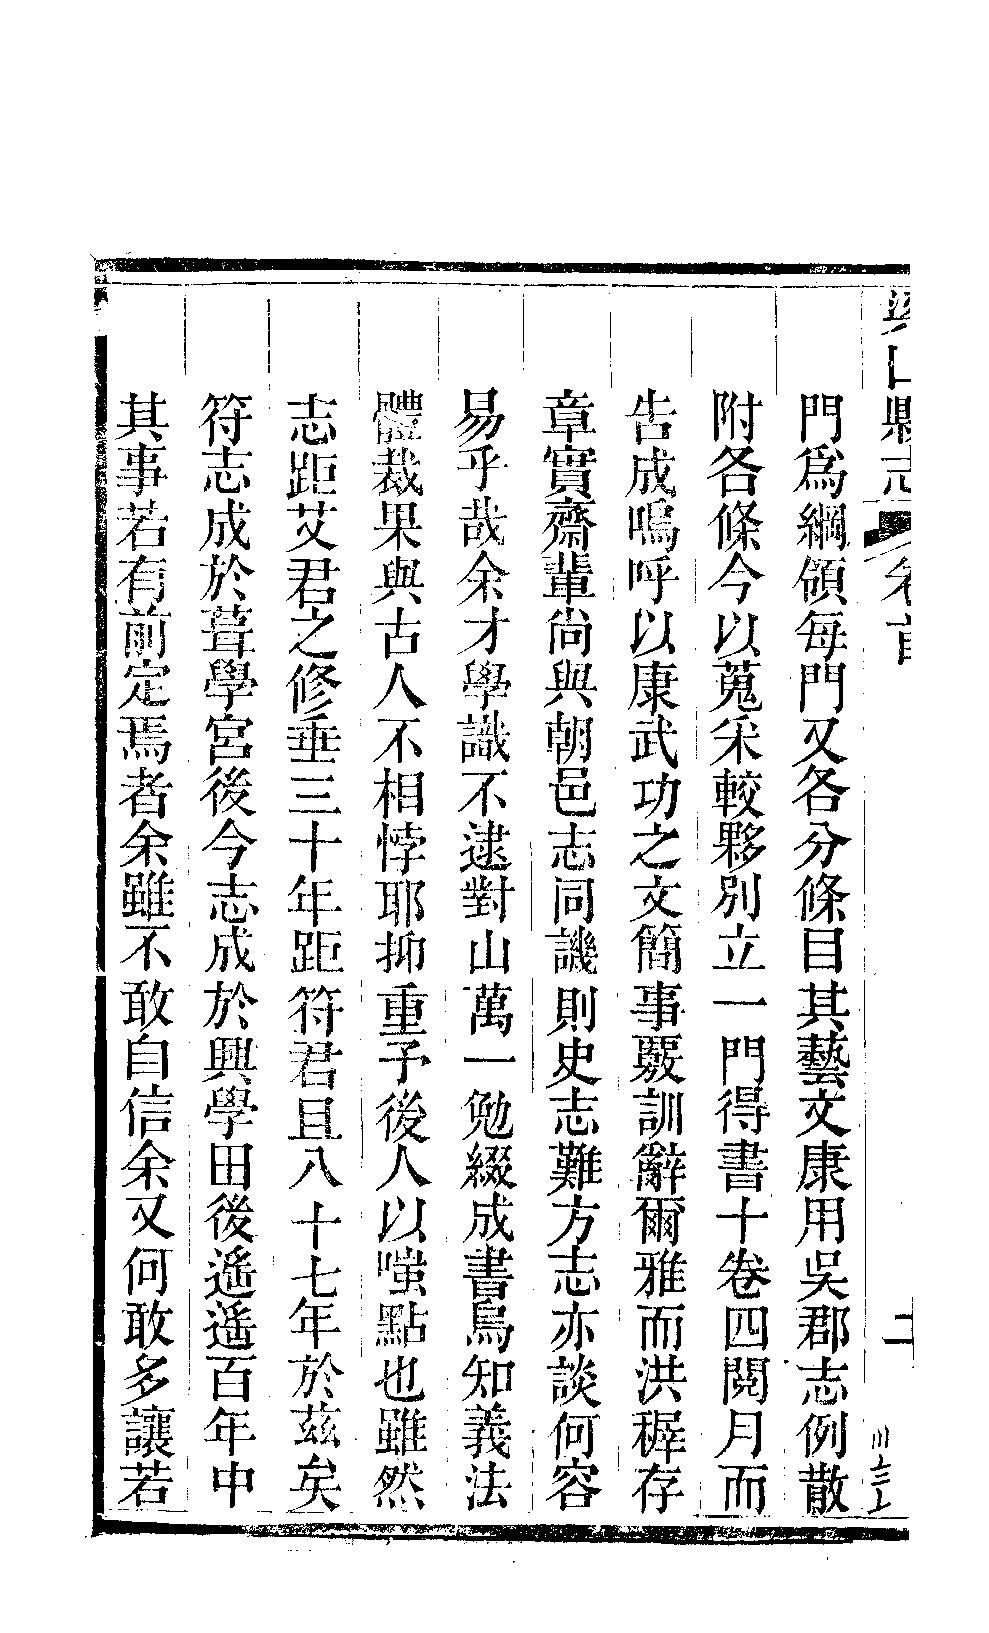 縣志 卷首 二
門爲綱領每門又各分條目其藝文康用吳郡志例散
附各條今以蒐采較夥別立一門得書十卷四閱月而
告成嗚呼以康武功之文簡事覈訓辭爾雅而洪穉存
章實齋輩尙與朝邑志同譏則史志難方志亦談何容
易乎哉余才學識不逮對山萬一勉綴成書烏知義法
體裁果與古人不相悖耶抑重予後人以嗤點也雖然
志距艾君之修垂三十年距符君且八十七年於茲矣
符志成於葺學宮後今志成於興學田後遙遙百年中
其事若有前定焉者余雖不敢自信余又何敢多讓若